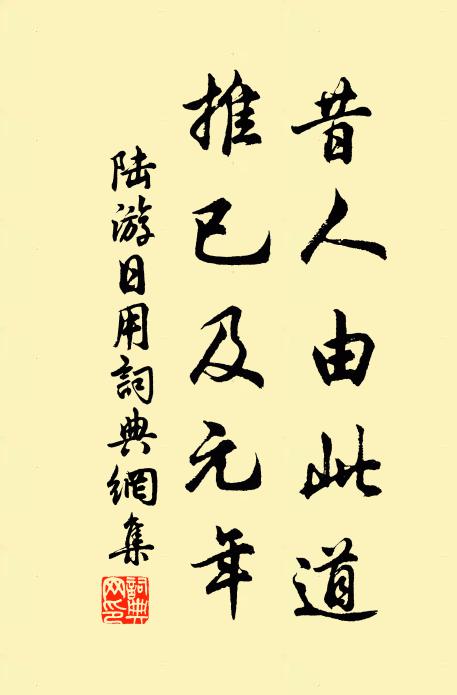 昔人由此道
推己及元年
陆游日用詞典網集
詞典网印